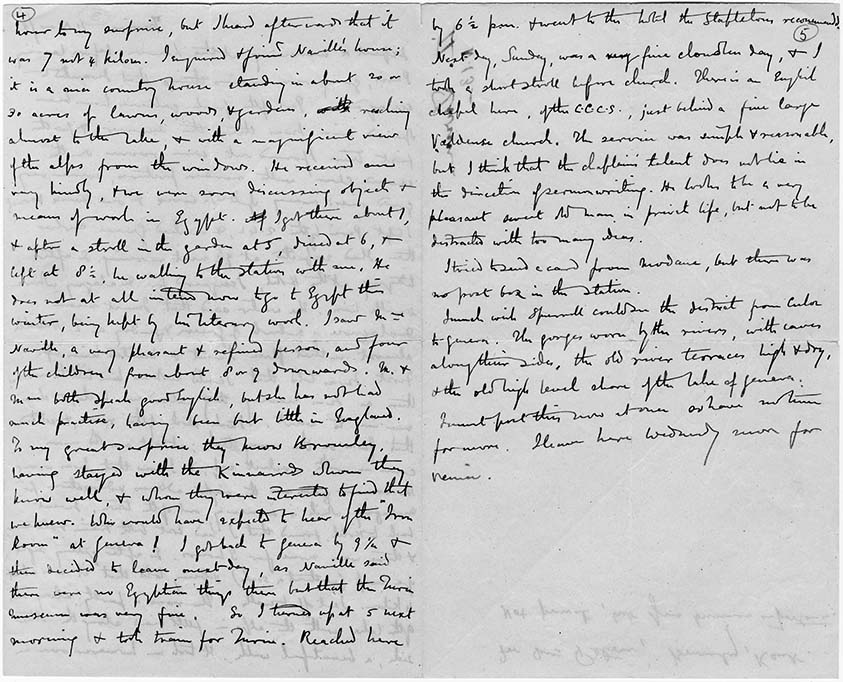 4
hour to my surprise, but I heard afterwards that it
was 7 not 4 kilom. I inquired & found Naville's house;
it is a nice country house standing in about 20 or
30 acres of lawns, woods, & garden, reaching
almost to the lake, & with a magnificent view
of the alps from the windows. He received me
very kindly, & we were soon discussing objects &
means of work in Egypt. I got there about 1,
& after a stroll in the garden at 5 dined at 6, &
left at 8½, he walking to the station with me. He
does not at all intend now to go to Egypt this
winter, being kept by his literary work. I saw Mme
Naville, a very pleasant & refined person, and four
of the children from about 8 or 9 downwards. M. &
Mme both speak good English, but she has not had
much practise, having been but little in England.
To my great surprise they know Bromley,
having stayed with the Kinnairds whom they
know well, & whom they were interested to find that
we knew. Who would have expected to hear of the "Iron
Room" at Geneva! I got back to Geneva by 9¼ &
then decided to leave next day, as Naville said
there were no Egyptian things there but that the Turin
museum was very fine. So I turned up at 5 next
morning & took train for Turin. Reached here
5
by 6½ p.m. & went to the hotel the Stapletons recommended.
Next day, Sunday, was a very fine cloudless day, & I
took a short stroll before church. There is an English
chapel here, of the C.C.C.S., just behind a fine large
Valdense church. The service was simple & reasonable,
but I think that the chaplain's talent does not lie in
the direction of sermon writing. He looks like a very
pleasant sweet old man in private life, but not to be
distracted with too many ideas.
I tried to send a card from Modane, but there was
no post box in the station.
I much wish Spurrell could see the district from Culoz
to Geneva. The gorges worn by the rivers, with caves
along their sides, the old river terraces high & dry,
& the old high level shore of the lake of Geneva.
I must post this now at once as have no time
for more. I leave here Wednesday morn for
Venice.